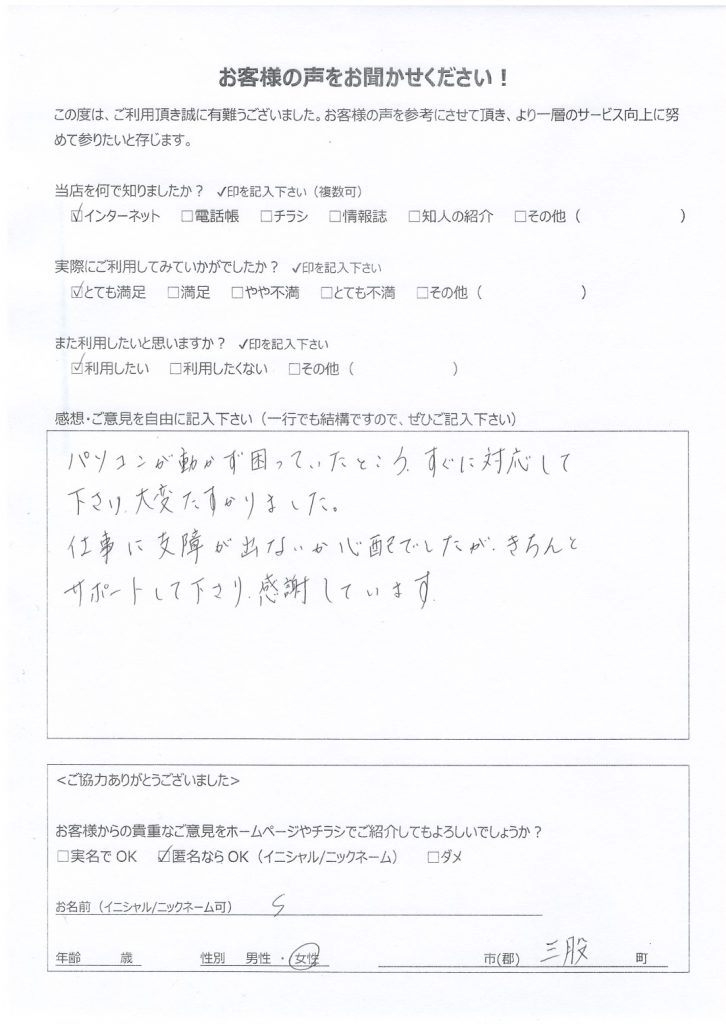 お客様の声をお聞かせください！
この度は、ご利用頂き誠に有難うございました。お客様の声を参考にさせて頂き、より一層のサービス向上に努
めて参りたいと存じます。
当店を何で知りましたか？ ✓印を記入下さい（複数可）
☑インターネット □電話帳 □チラシ □情報誌 □知人の紹介 □その他（ ）
実際にご利用してみていかがでしたか？ ✓印を記入下さい
☑とても満足 □満足 □やや不満 □とても不満 □その他（ ）
また利用したいと思いますか？ ✓印を記入下さい
☑利用したい □利用したくない □その他（ ）
感想・ご意見を自由に記入下さい（一行でも結構ですので、ぜひご記入下さい）
パソコンが動かず困っていたところ、すぐに対応して
下さり、大変たすかりました。
仕事に支障が出ないか心配でしたが、きちんと
サポートして下さり、感謝しています。
<ご協力ありがとうございました>
お客様からの貴重なご意見をホームページやチラシでご紹介してもよろしいでしょうか？
□実名でOK ☑匿名ならOK（イニシャル/ニックネーム） □ダメ
お名前（イニシャル/ニックネーム可） S
年齢 歳 性別 男性 ・ 女性 市(郡) 三股 町